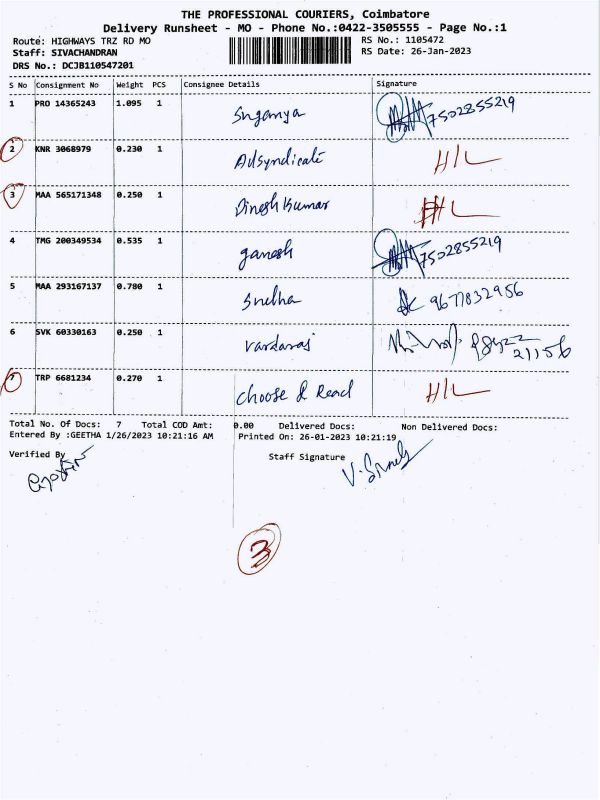 THE PROFESSIONAL COURIERS, Coimbatore
Delivery Runsheet - MO - Phone No.:0422-3505555 - Page No.:1
Route: HIGHWAYS TRZ RD MO RS No.: 1105472
Staff: SIVACHANDRAN RS Date: 26-Jan-2023
DRS No.: DCJB110547201
S No Consignment No Weight PCS Consignee Details Signature
1 PRO 14365243 1.095 1 Suganya 7502855219
2 KNR 3068979 0.230 1 Adsyndicate H/L
3 MAA 565171348 0.250 1 Dinesh Kumar H/L
4 TMG 200349534 0.535 1 ganesh 7502855219
5 MAA 293167137 0.780 1 Sneha 9677832956
6 SVK 60330163 0.250 1 Vardaraj
7 TRP 6681234 0.270 1 Choose & Read H/L
Total No. Of Docs: 7 Total COD Amt: 0.00 Delivered Docs: Non Delivered Docs:
Entered By :GEETHA 1/26/2023 10:21:16 AM Printed On: 26-01-2023 10:21:19
Verified By Staff Signature
3